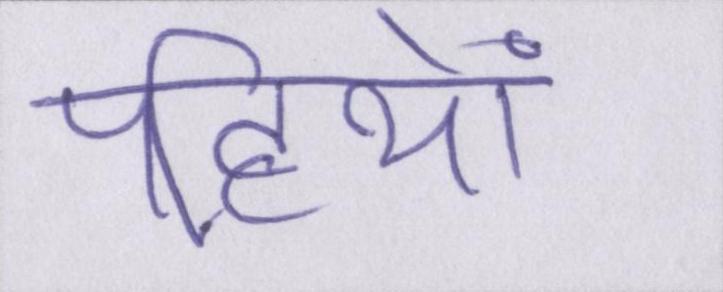 पहियों